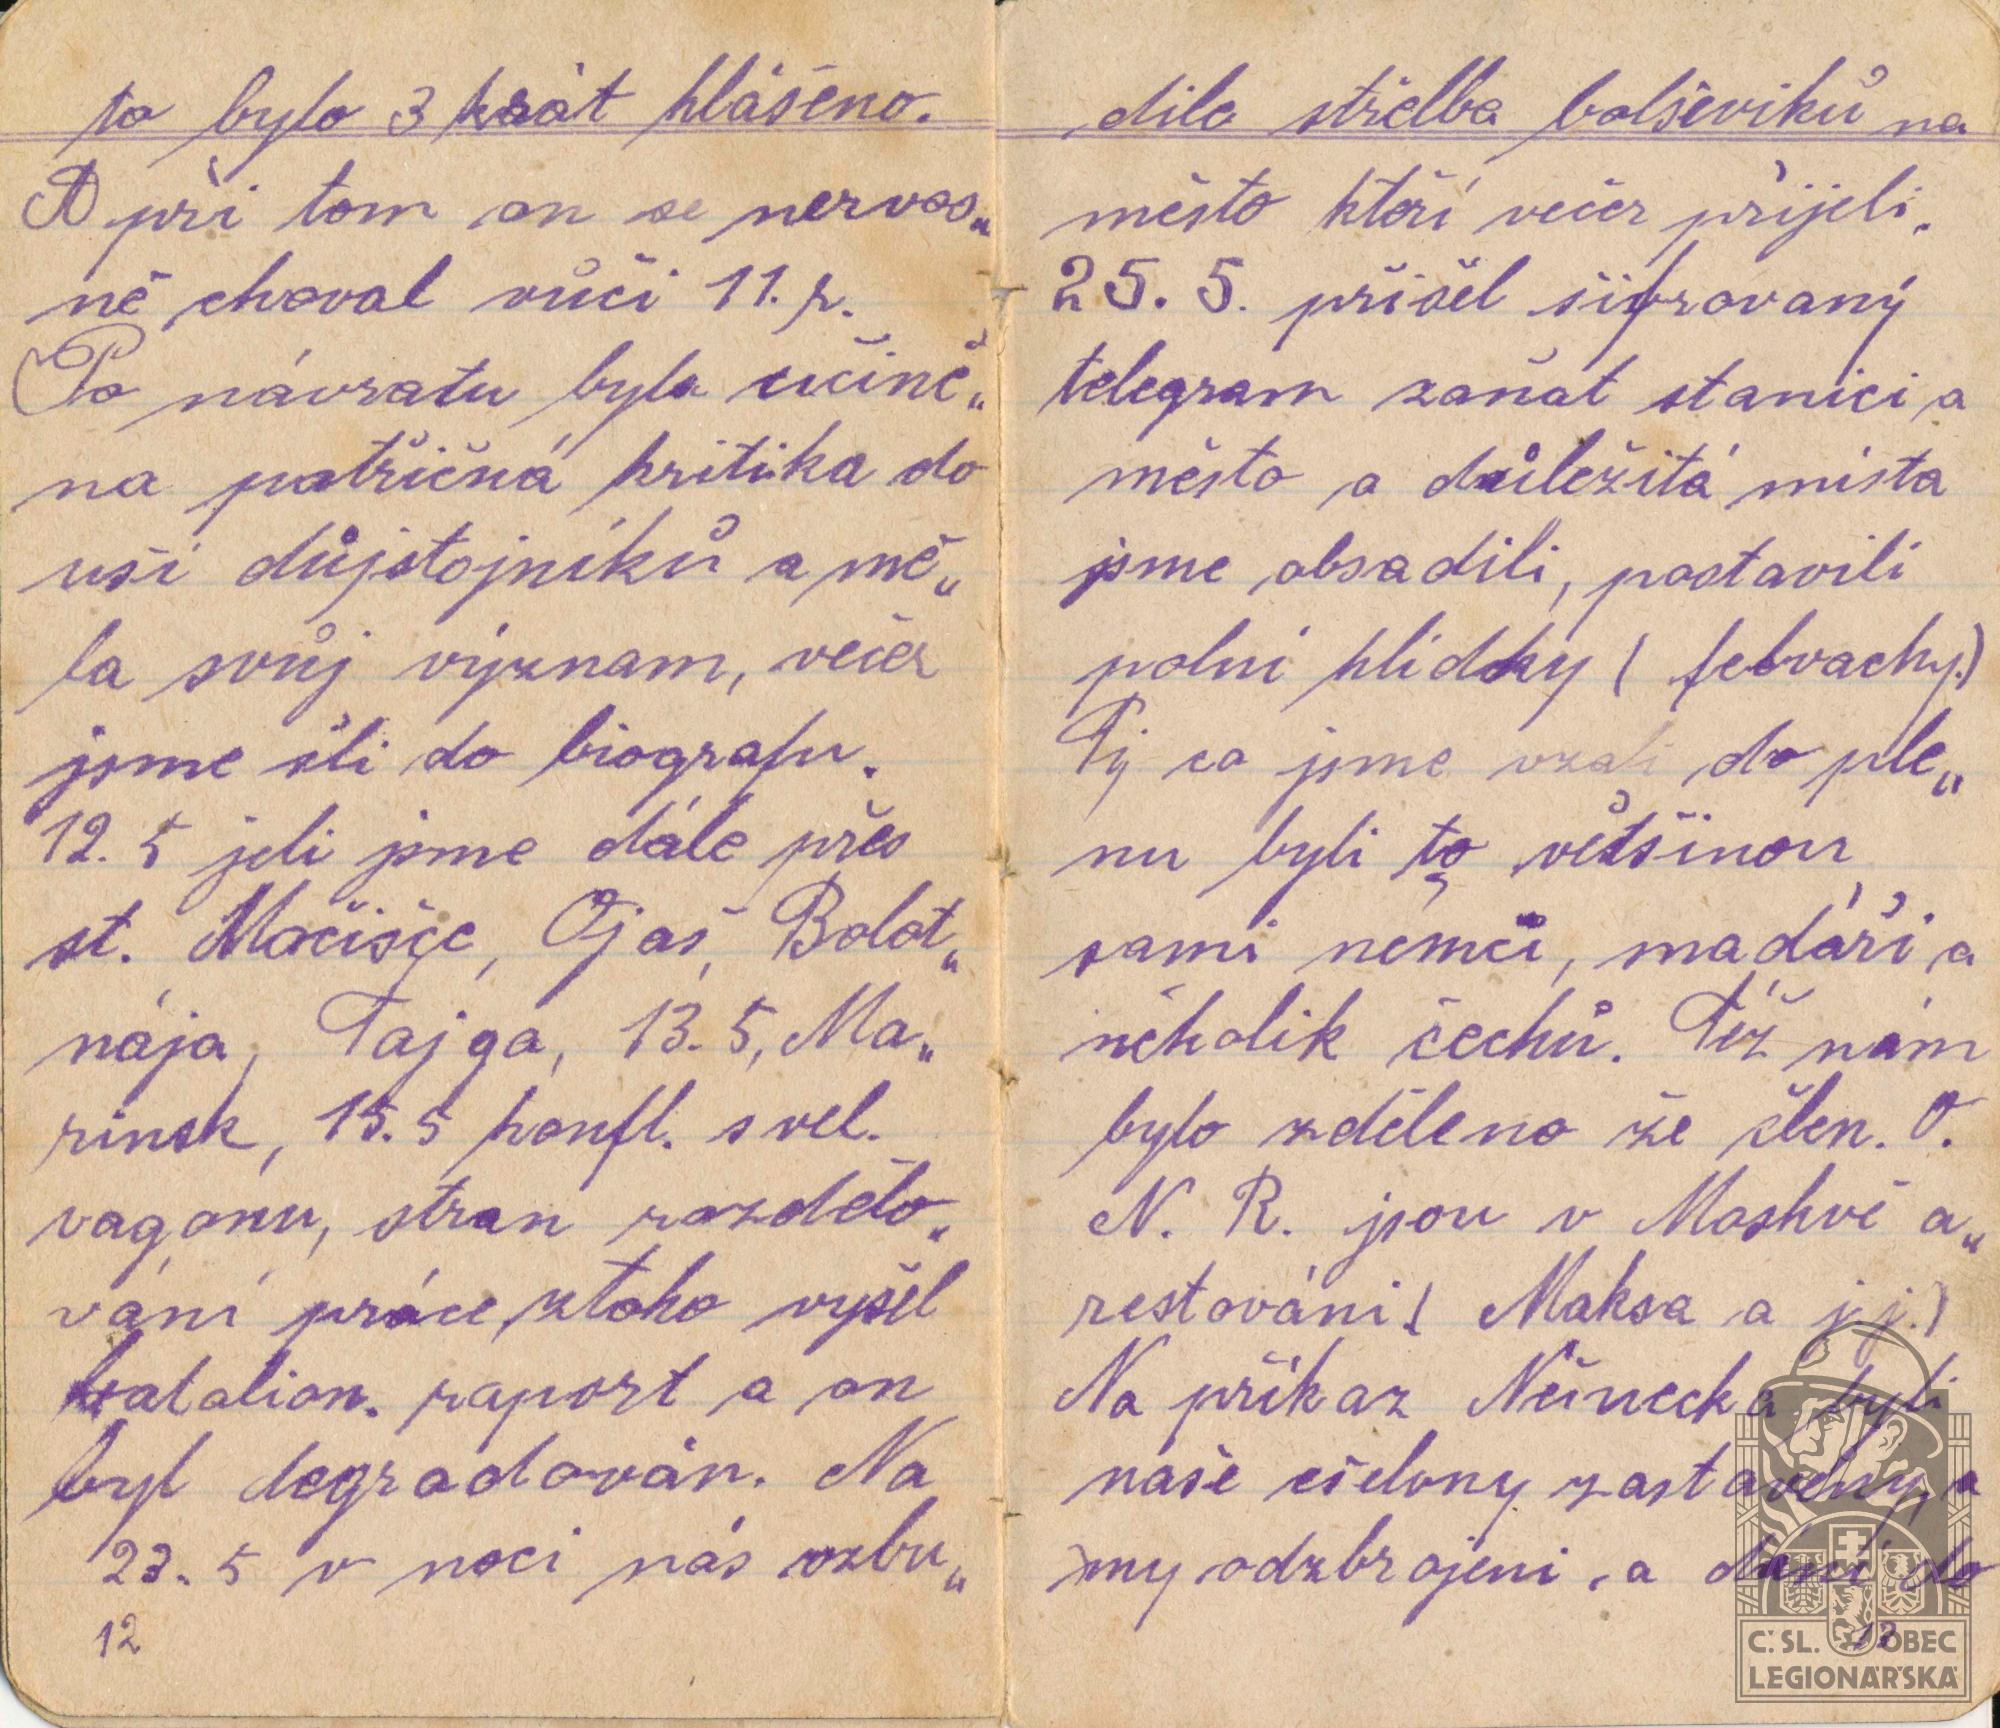 to bylo 3 krát hlášeno.
A při tom on se nervos„
ně choval vůči 11. r.
Po návratu byla učině„
na patřičná kritika do
uší důjstojníků a mě„
la svůj význam, večer
jsme šli do biografu.
12. 5 jeli jsme dále přes
st. Močišče, Ojaš, Bolot„
nája, Tajga, 13. 5, Ma„
rinsk, 15. 5 konfl. s vel.
vagonu, stran rozdělo„
vání práce, ztoho vyšel
batalion. raport a on
byl degradován. Na
23. 5 v noci nás vzbu„
12
dila střelba bolševiků na
město kteří večer přijeli.
25. 5. přišel šifrovaný
telegram zařat stanici a
město a důležitá místa
jsme obsadili, postavili
polní hlídky ( felvachy.)
Ty co jsme vzali do ple„
nu byli to většinou
sami němci, madáři a
několik čechů. Též nám
bylo zděleno že člen. O.
N. R. jsou v Moskvě a„
restováni ( Maksa a j. j.)
Na příkaz Něinecka byli
naše ešelony zastaveny, a
my odzbrojeni, a dáni do
13
Č. SL. OBEC
LEGIONÁŘSKÁ